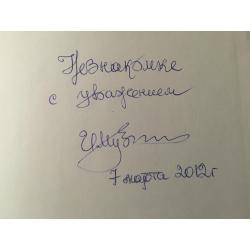 Незнакомке
с уважением
7 марта 2012г